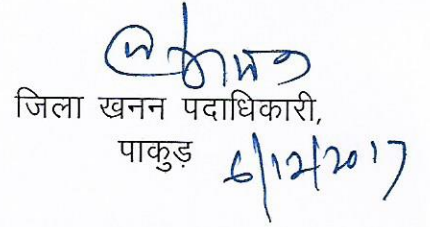 जिला खनन पदाधिकारी,
पाकुड़ 6/12/2017